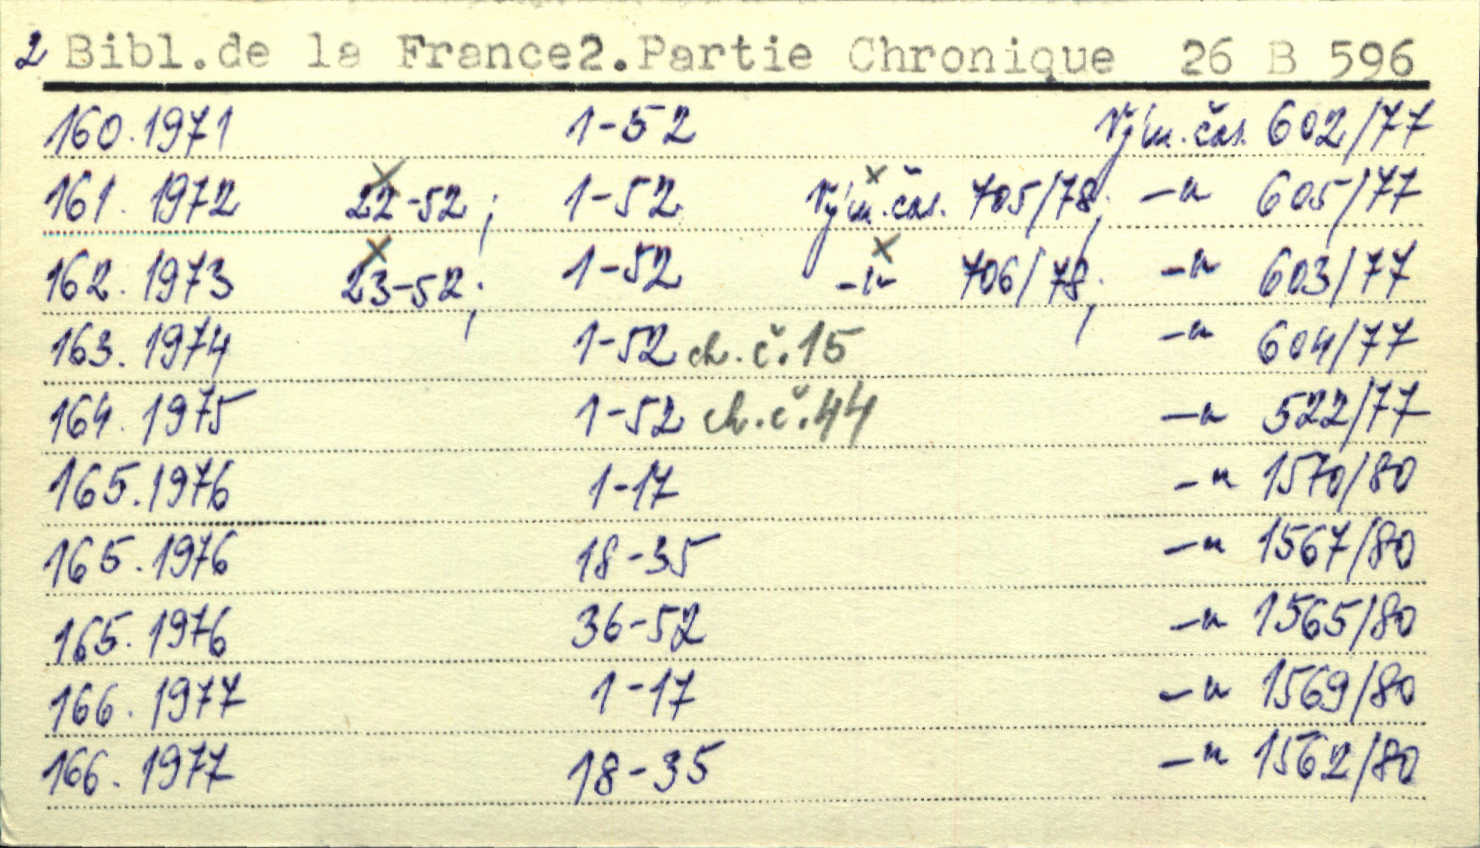 2 Bibl.de la France2.Partie Chronique 26 B 596
160.1971 1-52 Vým.čas. 602/77
161. 1972 22-52; 1-52 Vým.čas. 705/78; —"— 605/77
162. 1973 23-52; 1-52 —"— 706/78; —"— 603/77
163. 1974 1-52 ch.č.15 —"— 604/77
164. 1975 1-52 ch.č.44 —"— 522/77
165.1976 1-17 —"— 1570/80
165.1976 18-35 —"— 1567/80
165. 1976 36-52 —"— 1565/80
166. 1977 1-17 —"— 1569/80
166. 1977 18-35 —"— 1562/80